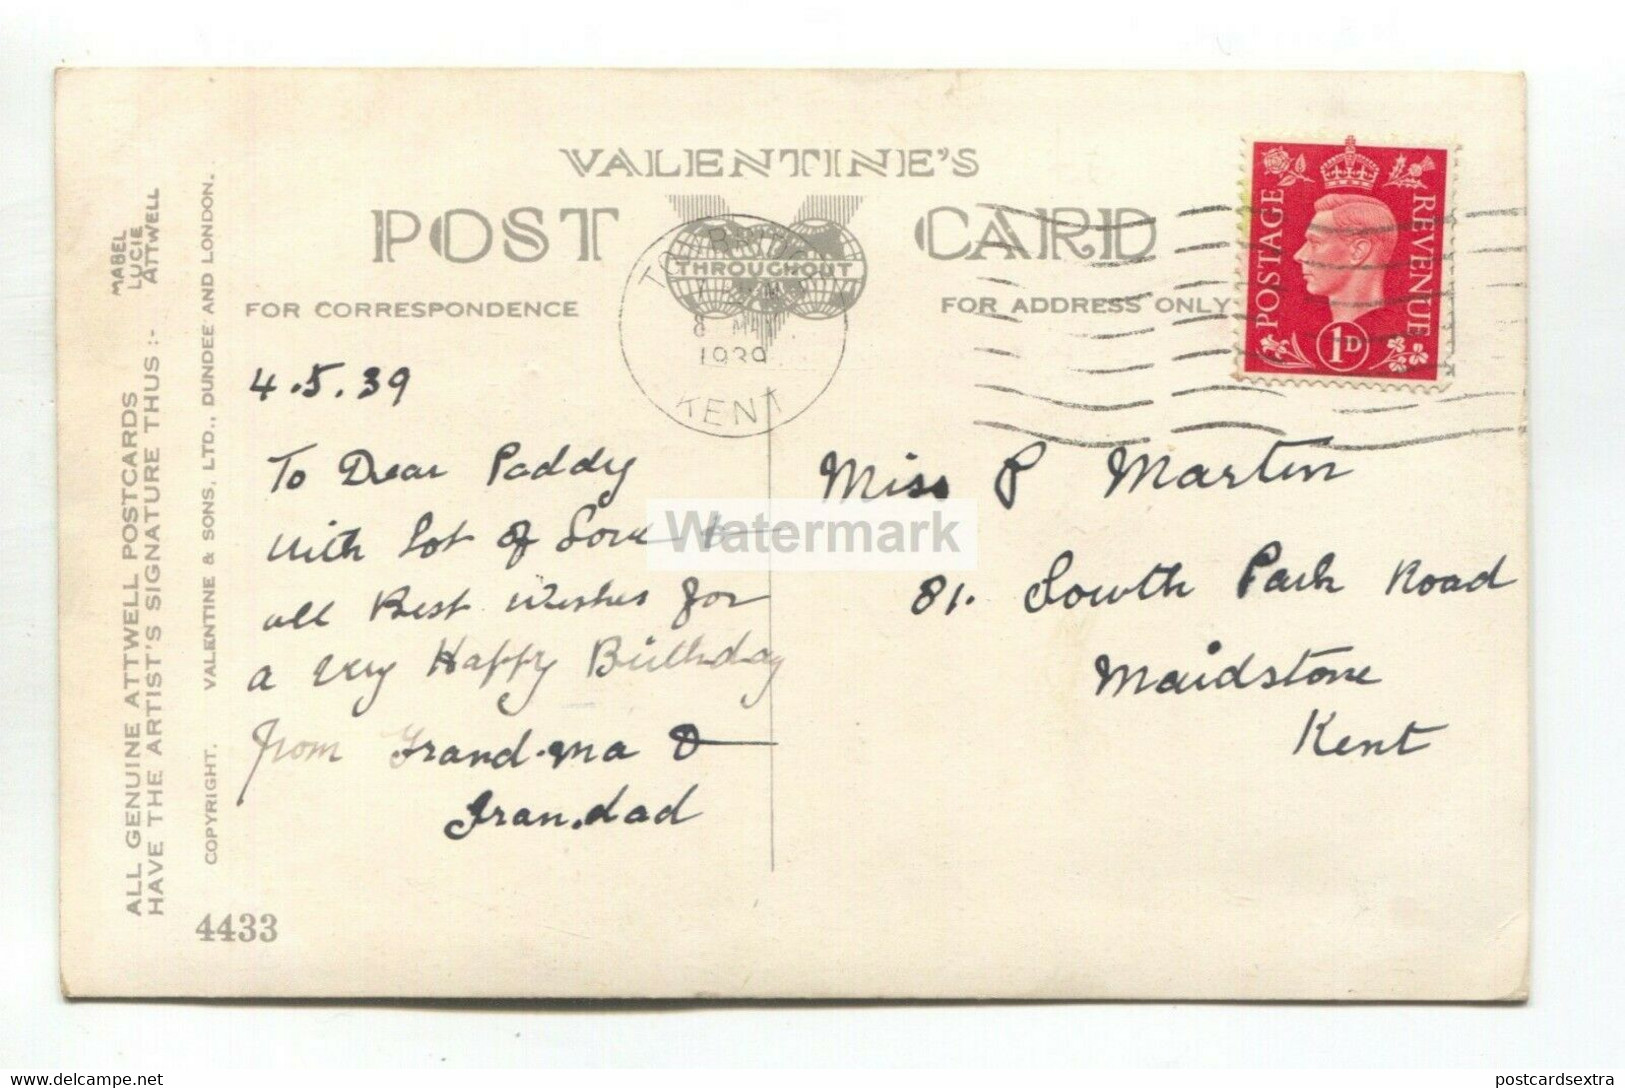 VALENTINE'S
POST CARD
THROUGHOUT
FOR CORRESPONDENCE
FOR ADDRESS ONLY
KENT
1939
POSTAGE
REVENUE
1D
4.5.39
To Dear Paddy
With Lot of Love &
all Best Wishes for
a very Happy Birthday
from Grand.ma &
Gran.dad
Miss P Martin
81. South Park Road
Maidstone
Kent
Watermark
ALL GENUINE ATTWELL POSTCARDS
HAVE THE ARTIST'S SIGNATURE THUS :-
MABEL
LUCIE
ATTWELL
COPYRIGHT. VALENTINE & SONS, LTD., DUNDEE AND LONDON.
4433
www.delcampe.net
postcardsextra